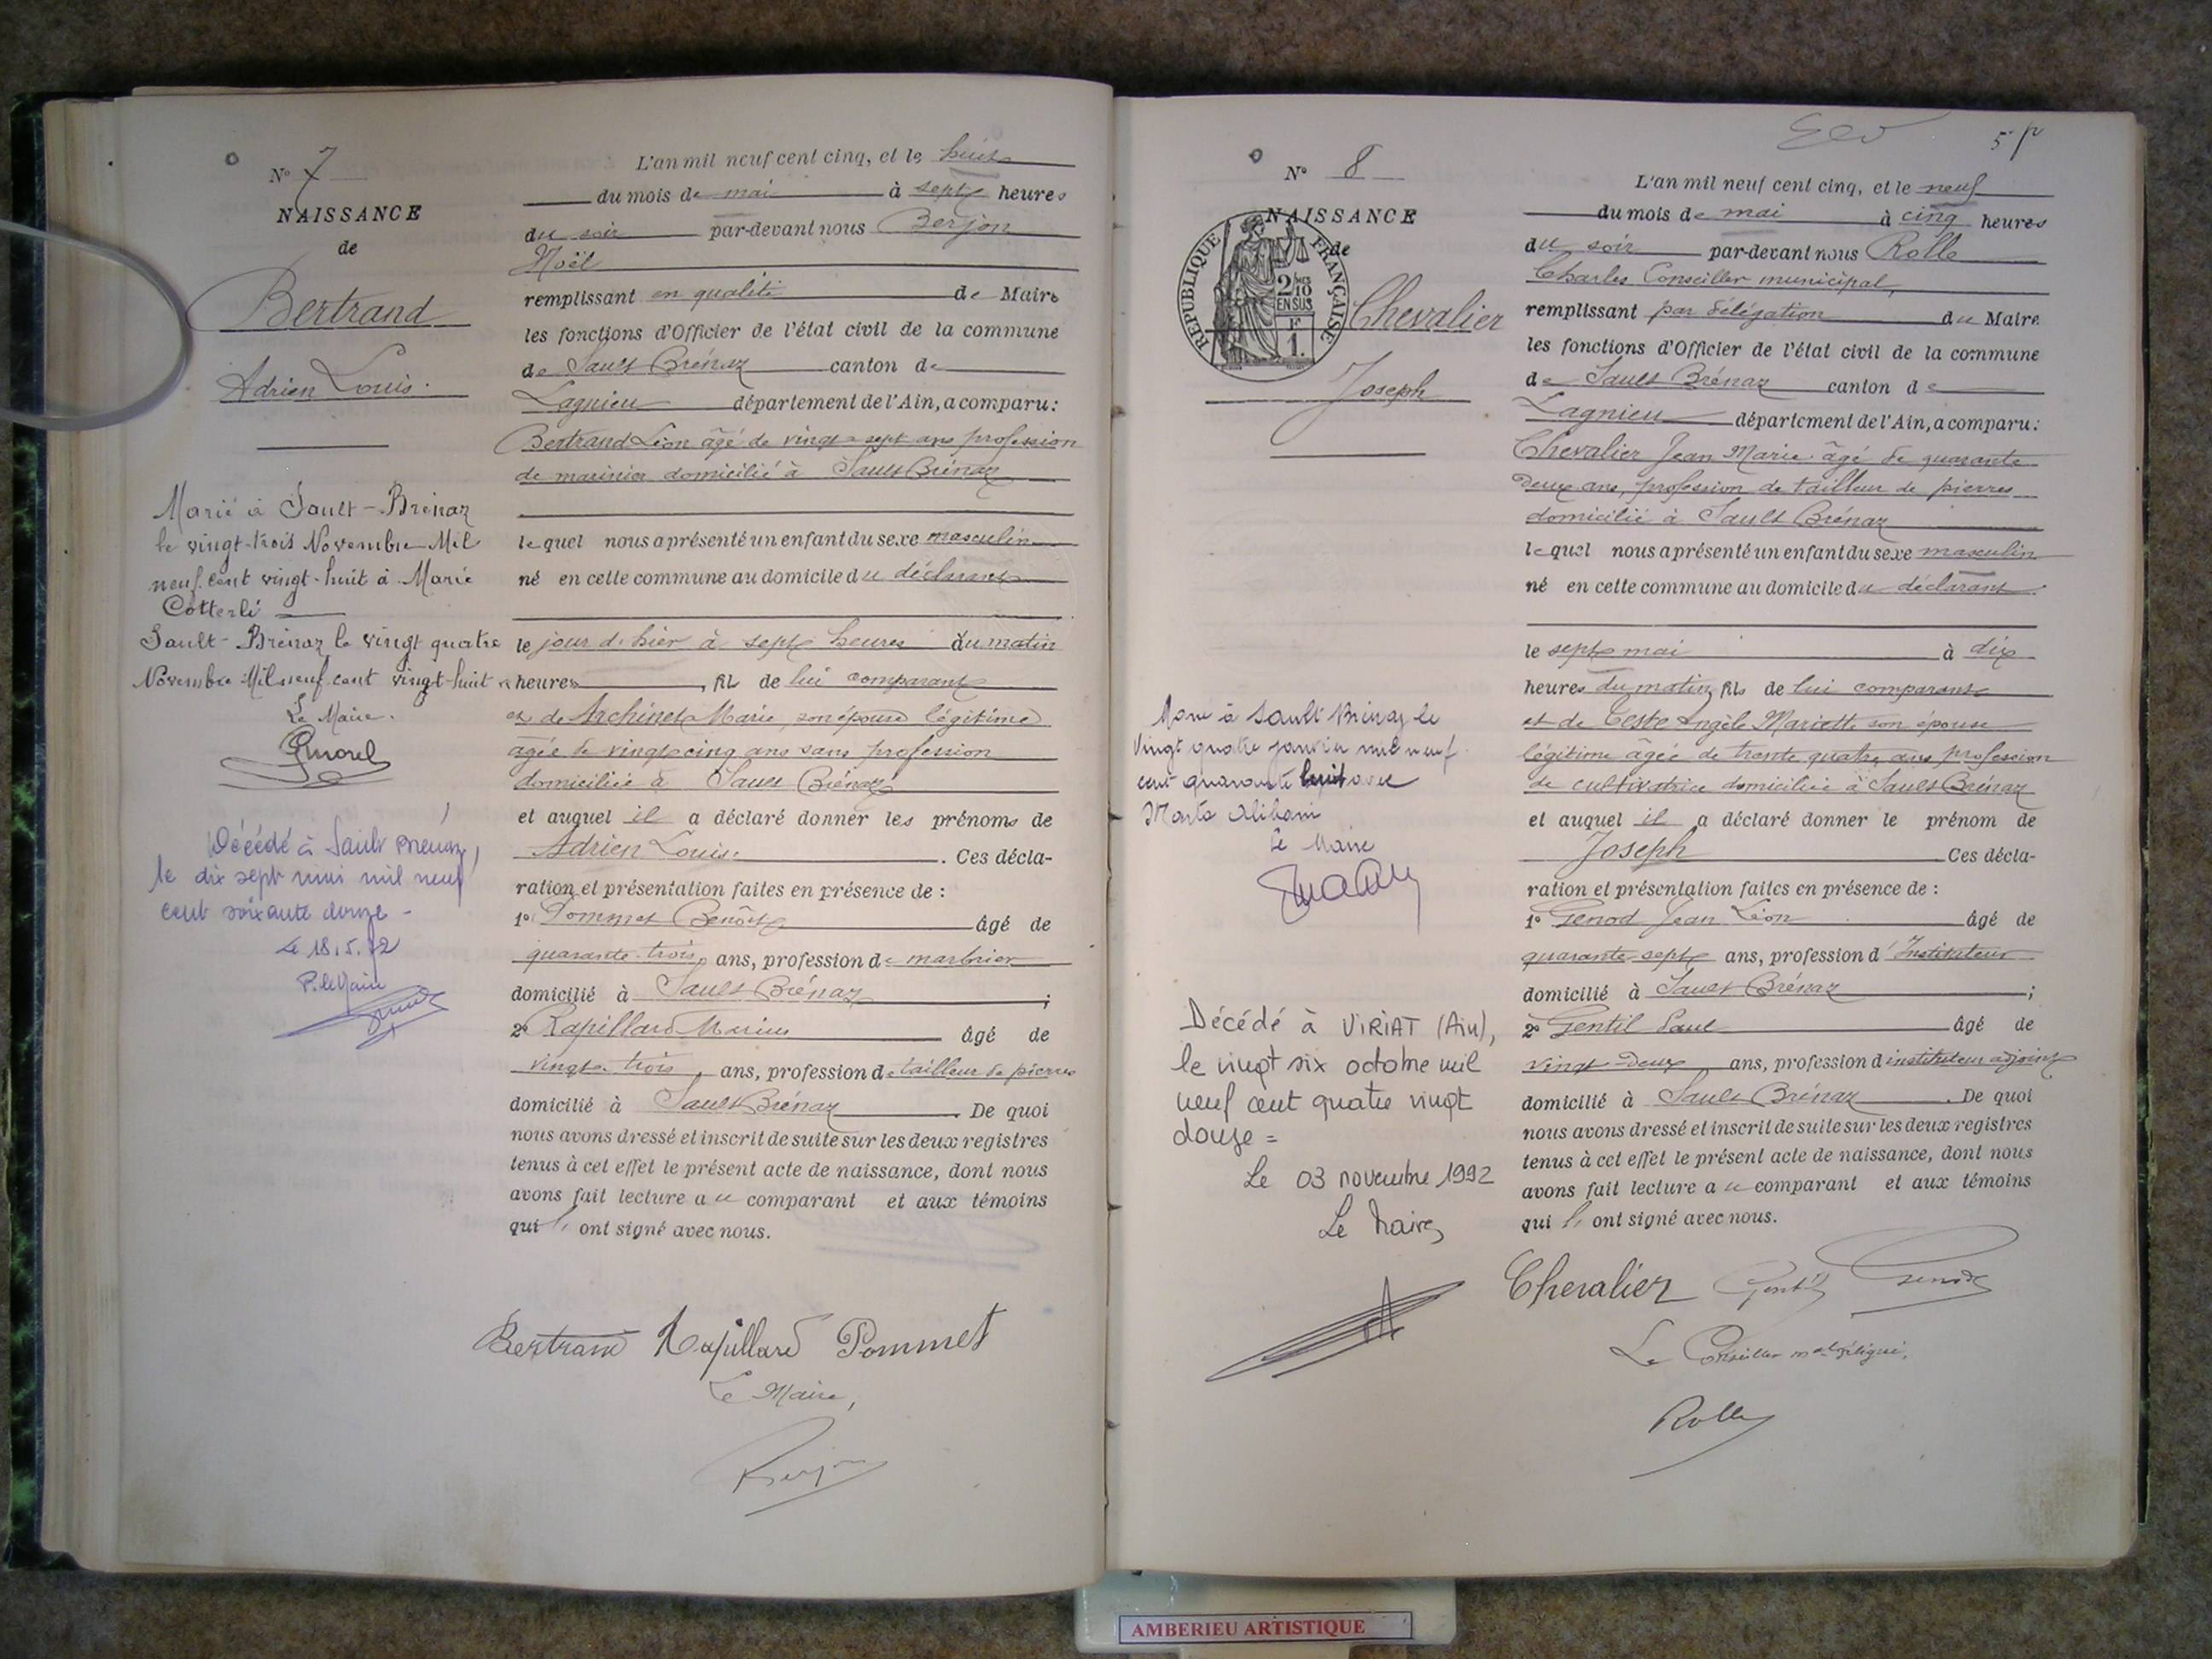 N° 7
NAISSANCE
de
Bertrand
Adrien Louis.
Marié à Sault-Brénaz
le vingt-trois Novembre Mil
neuf cent vingt-huit à Marie
Cotterlé
Sault-Brénaz le vingt quatre
Novembre Mil neuf cent vingt-huit
Le Maire.
Décédé à Sault Brénaz,
le dix sept mai mil neuf
cent soixante douze -
Le 18.5.72
P. le Maire
L'an mil neuf cent cinq, et le huit
du mois de mai à sept heures
du soir par-devant nous Berjon
Noël
remplissant en qualité de Maire
les fonctions d'Officier de l'état civil de la commune
de Sault Brénaz canton de
Lagnieu département de l'Ain, a comparu:
Bertrand Léon âgé de vingt-sept ans profession
de marinier domicilié à Sault Brénaz
lequel nous a présenté un enfant du sexe masculin
né en cette commune au domicile du déclarant
le jour d'hier à sept heures du matin
heures, fil de lui comparant
et de Archinet Marie, son épouse légitime
âgée de vingt cinq ans sans profession
domiciliée à Sault Brénaz
et auquel il a déclaré donner les prénoms de
Adrien Louis. Ces décla-
ration et présentation faites en présence de :
1° Pommet Benoît âgé de
quarante-trois ans, profession de marbrier
domicilié à Sault Brénaz ;
2° Rapillard Marius âgé de
vingt trois, ans, profession de tailleur de pierres
domicilié à Sault Brénaz. De quoi
nous avons dressé et inscrit de suite sur les deux registres
tenus à cet effet le présent acte de naissance, dont nous
avons fait lecture au comparant et aux témoins
qui l' ont signé avec nous.
Bertrand Rapillard Pommet
Le Maire,
Berjon
5
N° 8
NAISSANCE
de
REPUBLIQUE FRANÇAISE
2/10
EN SUS
F
1.
Chevalier
Joseph
Marié à Sault Brénaz le
vingt quatre janvier mil neuf
cent quarante huit avec
Marta Alibani
Le Maire
Décédé à VIRIAT (Ain),
le vingt six octobre mil
neuf cent quatre vingt
douze =
Le 03 novembre 1992
Le Maire,
L'an mil neuf cent cinq, et le neuf
du mois de mai à cinq heures
du soir par-devant nous Rolle
Charles Conseiller municipal,
remplissant par délégation du Maire
les fonctions d'Officier de l'état civil de la commune
de Sault Brénaz canton de
Lagnieu département de l'Ain, a comparu:
Chevalier Jean Marie âgé de quarante
deux ans, profession de tailleur de pierres
domicilié à Sault Brénaz
lequel nous a présenté un enfant du sexe masculin
né en cette commune au domicile du déclarant
le sept mai à dix
heures du matin, fils de lui comparant
et de Teste Angèle Mariette son épouse
légitime âgée de trente quatre ans profession
de cultivatrice domiciliée à Sault Brénaz
et auquel il a déclaré donner le prénom de
Joseph Ces décla-
ration et présentation faites en présence de :
1° Genod Jean Léon âgé de
quarante sept ans, profession d'Instituteur
domicilié à Sault Brénaz ;
2° Gentil Paul âgé de
vingt-deux ans, profession d'instituteur adjoint
domicilié à Sault Brénaz. De quoi
nous avons dressé et inscrit de suite sur les deux registres
tenus à cet effet le présent acte de naissance, dont nous
avons fait lecture au comparant et aux témoins
qui l' ont signé avec nous.
Chevalier Gentil Genod
Le Conseiller mal délégué,
Rolle
AMBERIEU ARTISTIQUE